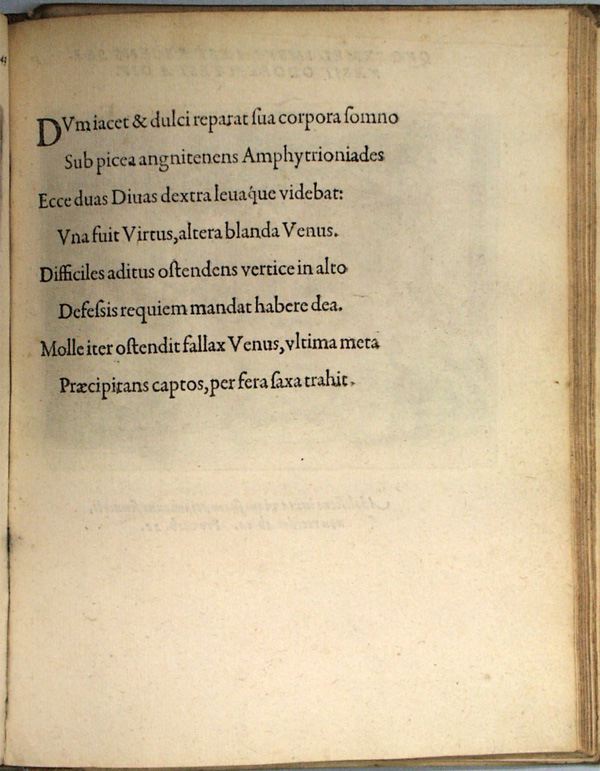 DVm iacet & dulci reparat ſua corpora ſomno
Sub picea angnitenens Amphytrioniades
Ecce duas Diuas dextra leuaq́ue videbat:
Vna fuit Virtus, altera blanda Venus.
Difficiles aditus oſtendens vertice in alto
Defeſsis requiem mandat habere dea.
Molle iter oſtendit fallax Venus, vltima meta
Præcipitans captos, per fera ſaxa trahit.